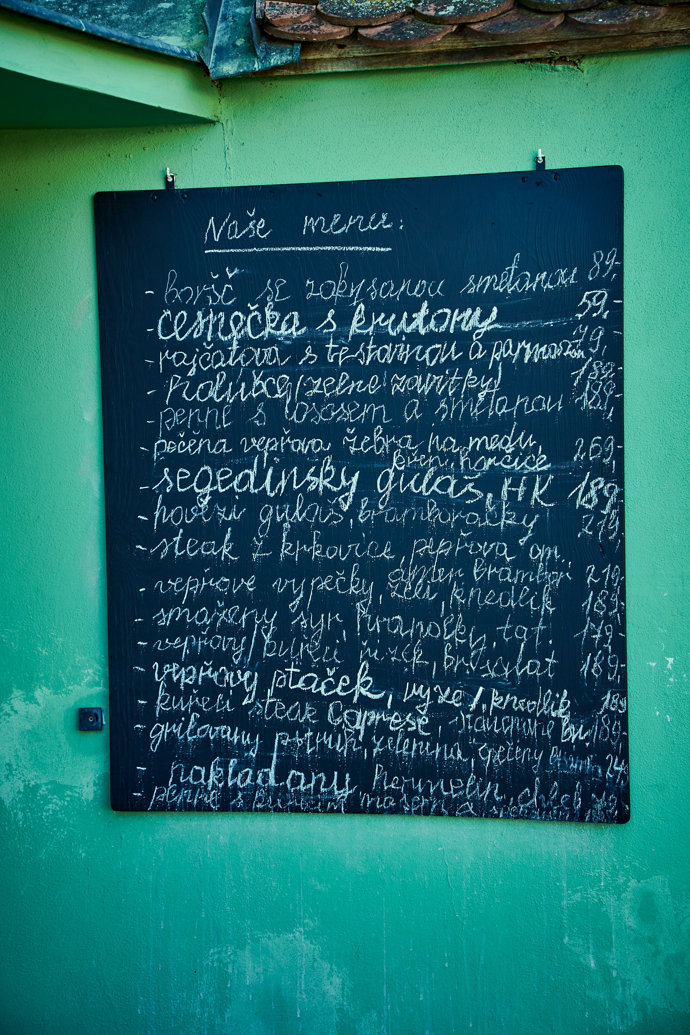 Naše menu:
- boršč se zakysanou smetanou 89,-
- česnečka s krutony 59,-
- rajčatová s těstovinou a parmazán 79,-
- holubce/zelné závitky/ 189,-
- penne s lososem a smetanou 189,-
- pečená vepřová žebra na medu, 269,-
křen, hořčice
- segedínský guláš, HK 189,-
- hovězí guláš, bramboráčky 219,-
- steak z krkovice, pepřová om.,
amer. brambory 219,-
- vepřové výpečky, zelí, knedlík 189,-
- smažený sýr, hranolky, tat. 179,-
- vepřový/kuřecí řízek, br. salát 189,-
- vepřový ptáček, rýže/h. knedlík 189
- kuřecí steak Caprese, šťouchané br. 189,-
- grilovaný pstruh, zelenina, 
- nakládaný hermelín, chléb
- penne s kuřecím masem a